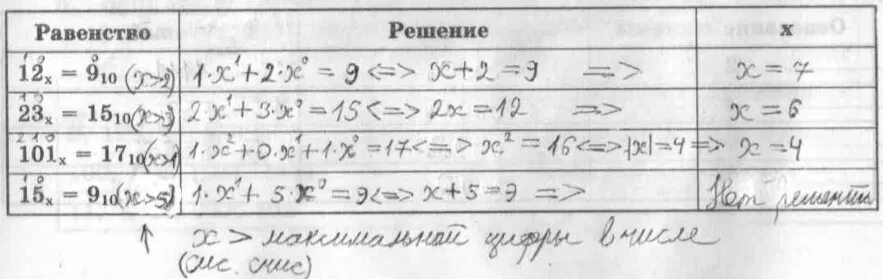 Равенство Решение x
12ₓ = 9₁₀ (x>2) 1·x¹+2·x⁰ = 9 <=> x+2=9 => x = 7
23ₓ = 15₁₀ (x>3) 2·x¹+3·x⁰=15 <=> 2x=12 => x = 6
101ₓ = 17₁₀ (x>1) 1·x²+0·x¹+1·x⁰=17 <=> x²=16 <=> |x|=4 => x=4
15ₓ = 9₁₀ (x>5) 1·x¹+5·x⁰=9 <=> x+5=9 => Нет решения
↑ x > максимальной цифры в числе
(сис. счис)